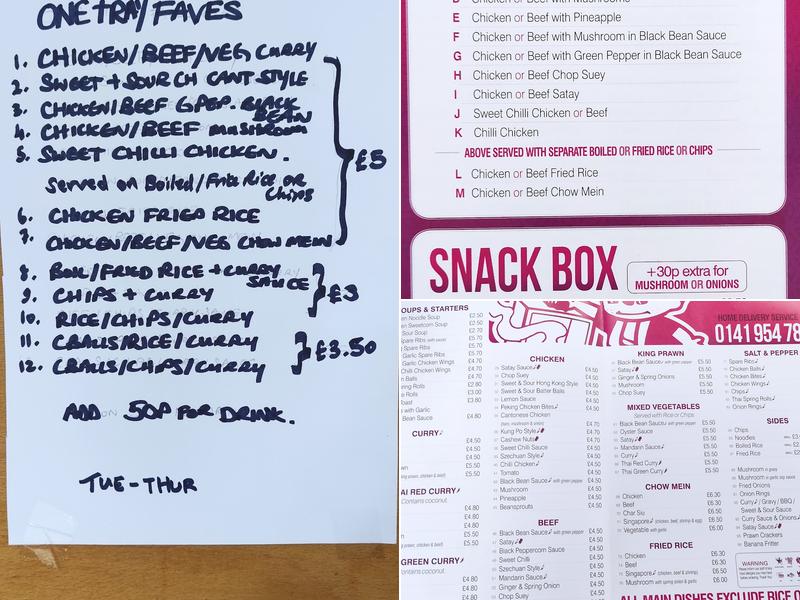 ONE TRAY FAVES
1. CHICKEN/BEEF/VEG CURRY
2. SWEET + SOUR CH CANT STYLE
3. CHICKEN/BEEF G.PEP. BLACK BEAN
4. CHICKEN/BEEF MUSHROOM
5. SWEET CHILLI CHICKEN.
Served on Boiled/Fried Rice or Chips
6. CHICKEN FRIED RICE
7. CHICKEN/BEEF/VEG CHOW MEIN
£5
8. BOIL/FRIED RICE + CURRY SAUCE
9. CHIPS + CURRY
10. RICE/CHIPS/CURRY
£3
11. CBALLS/RICE/CURRY
12. CBALLS/CHIPS/CURRY
£3.50
ADD 50P FOR DRINK.
TUE-THUR
E Chicken or Beef with Pineapple
F Chicken or Beef with Mushroom in Black Bean Sauce
G Chicken or Beef with Green Pepper in Black Bean Sauce
H Chicken or Beef Chop Suey
I Chicken or Beef Satay
J Sweet Chilli Chicken or Beef
K Chilli Chicken
ABOVE SERVED WITH SEPARATE BOILED OR FRIED RICE OR CHIPS
L Chicken or Beef Fried Rice
M Chicken or Beef Chow Mein
SNACK BOX
+30p extra for
MUSHROOM OR ONIONS
HOME DELIVERY SERVICE
0141 954 78
OUPS & STARTERS
en Noodle Soup £2.50
en Sweetcorn Soup £2.50
Sour Soup £2.70
Spare Ribs
Spare Ribs
Garlic Spare Ribs
Garlic Chicken Wings
Chilli Chicken Wings
n Balls
ring Rolls
e Rolls
Toast
with Garlic
n Black Bean Sauce £4.80
CURRY
£4.50
£4.50
£4.50
£5.50
£5.50
AI RED CURRY
Contains coconut
£4.80
£4.80
£4.80
£5.50
GREEN CURRY
ontains coconut
£4.80
£4.80
CHICKEN
Satay Sauce £4.50
Chop Suey £4.50
Sweet & Sour Hong Kong Style £4.50
Sweet & Sour Batter Balls £4.50
Lemon Sauce £4.50
Peking Chicken Bites £4.50
Cantonese Chicken
Kung Po Style £4.70
Cashew Nuts £4.70
Sweet Chilli Sauce £4.50
Szechuan Style £4.50
Chilli Chicken £4.50
Tomato £4.50
Black Bean Sauce with green pepper £4.50
Mushroom £4.50
Pineapple £4.50
Beansprouts £4.50
BEEF
Black Bean Sauce with green pepper £4.50
Satay £4.50
Black Peppercorn Sauce £4.50
Sweet Chilli £4.50
Szechuan Style £4.50
Mandarin Sauce £4.50
Ginger & Spring Onion £4.50
Chop Suey £4.50
KING PRAWN
Black Bean Sauce with green pepper £5.50
Satay £5.50
Ginger & Spring Onions £5.50
Mushroom £5.50
Chop Suey £5.50
MIXED VEGETABLES
Served with Rice or Chips
Black Bean Sauce with green pepper £5.50
Oyster Sauce £5.50
Satay £5.50
Mandarin Sauce £5.50
Curry £5.50
Thai Red Curry £5.50
Thai Green Curry £5.50
CHOW MEIN
Chicken £6.30
Beef £6.30
Char Siu £6.50
Singapore (chicken, beef, shrimp & egg) £6.50
Vegetable with garlic £6.00
FRIED RICE
Chicken £6.30
Beef £6.30
Singapore (chicken, beef & shrimp) £6.50
Mushroom with spring onion & garlic £6.00
SALT & PEPPER
Spare Ribs
Chicken Balls
Chicken Bites
Chicken Wings
Chips
Thai Spring Rolls
Onion Rings
SIDES
Chips
Noodles
Boiled Rice
Fried Rice
Mushroom in gravy
Mushroom in garlic soy sauce
Fried Onions
Onion Rings
Curry / Gravy / BBQ /
Sweet & Sour Sauce
Curry Sauce & Onions
Satay Sauce
Prawn Crackers
Banana Fritter
WARNING
ALL MAIN DISHES EXCLUDE RICE O